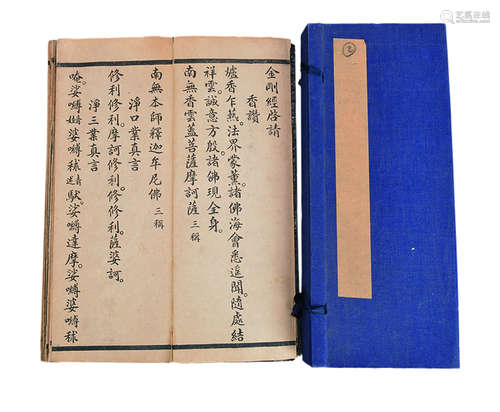 金剛經啓請
香讚
爐香乍爇。法界蒙薰。諸佛海會悉遙聞。隨處結
祥雲。誠意方殷。諸佛現全身。
南無香雲蓋菩薩摩訶薩 三稱
南無本師釋迦牟尼佛 三稱
淨口業真言
修利修利。摩訶修利。修修利。薩婆訶。
淨三業真言
唵。娑嚩婆嚩秫馱。娑嚩達摩。娑嚩婆嚩秫